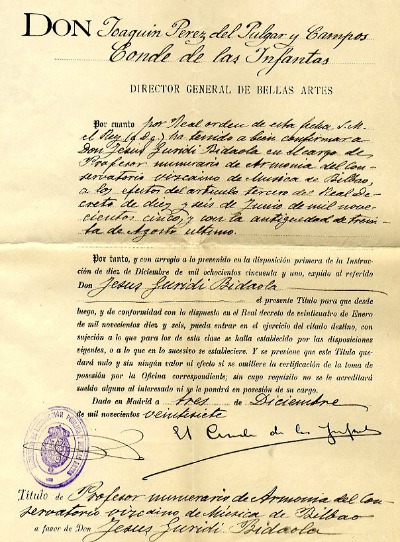 DON Joaquin Perez del Pulgar y Campos
Conde de las Infantas
DIRECTOR GENERAL DE BELLAS ARTES
Por cuanto por Real orden de esta fecha, S. M.
el Rey (q. D. g.) ha tenido a bien confirmar a
Don Jesus Guridi Bidaola en el cargo de
Profesor numerario de Armonia del Con-
servatorio vizcaino de Musica de Bilbao,
a los efectos del articulo tercero del Real De-
creto de diez y seis de Junio de mil nove-
cientos cinco, y con la antigüedad de trein-
ta de Agosto ultimo.
Por tanto, y con arreglo a lo prevenido en la disposición primera de la Instruc-
ción de diez de Diciembre de mil ochocientos cincuenta y uno, expido al referido
Don Jesus Guridi Bidaola
el presente Título para que desde
luego, y de conformidad con lo dispuesto en el Real decreto de veinticuatro de Enero
de mil novecientos diez y seis, pueda entrar en el ejercicio del citado destino, con
sujeción a lo que para los de esta clase se halla establecido por las disposiciones
vigentes, o a lo que en lo sucesivo se estableciere. Y se previene que este Título que-
dará nulo y sin ningún valor ni efecto si se omitiere la certificación de la toma de
posesión por la Oficina correspondiente; sin cuyo requisito no se le acreditará
sueldo alguno al interesado ni se le pondrá en posesión de su cargo.
Dado en Madrid a tres de Diciembre
de mil novecientos veintisiete
El Conde de las Infantas
Título de Profesor numerario de Armonia del Con-
servatorio vizcaino de Música de Bilbao
a favor de Don Jesus Guridi Bidaola